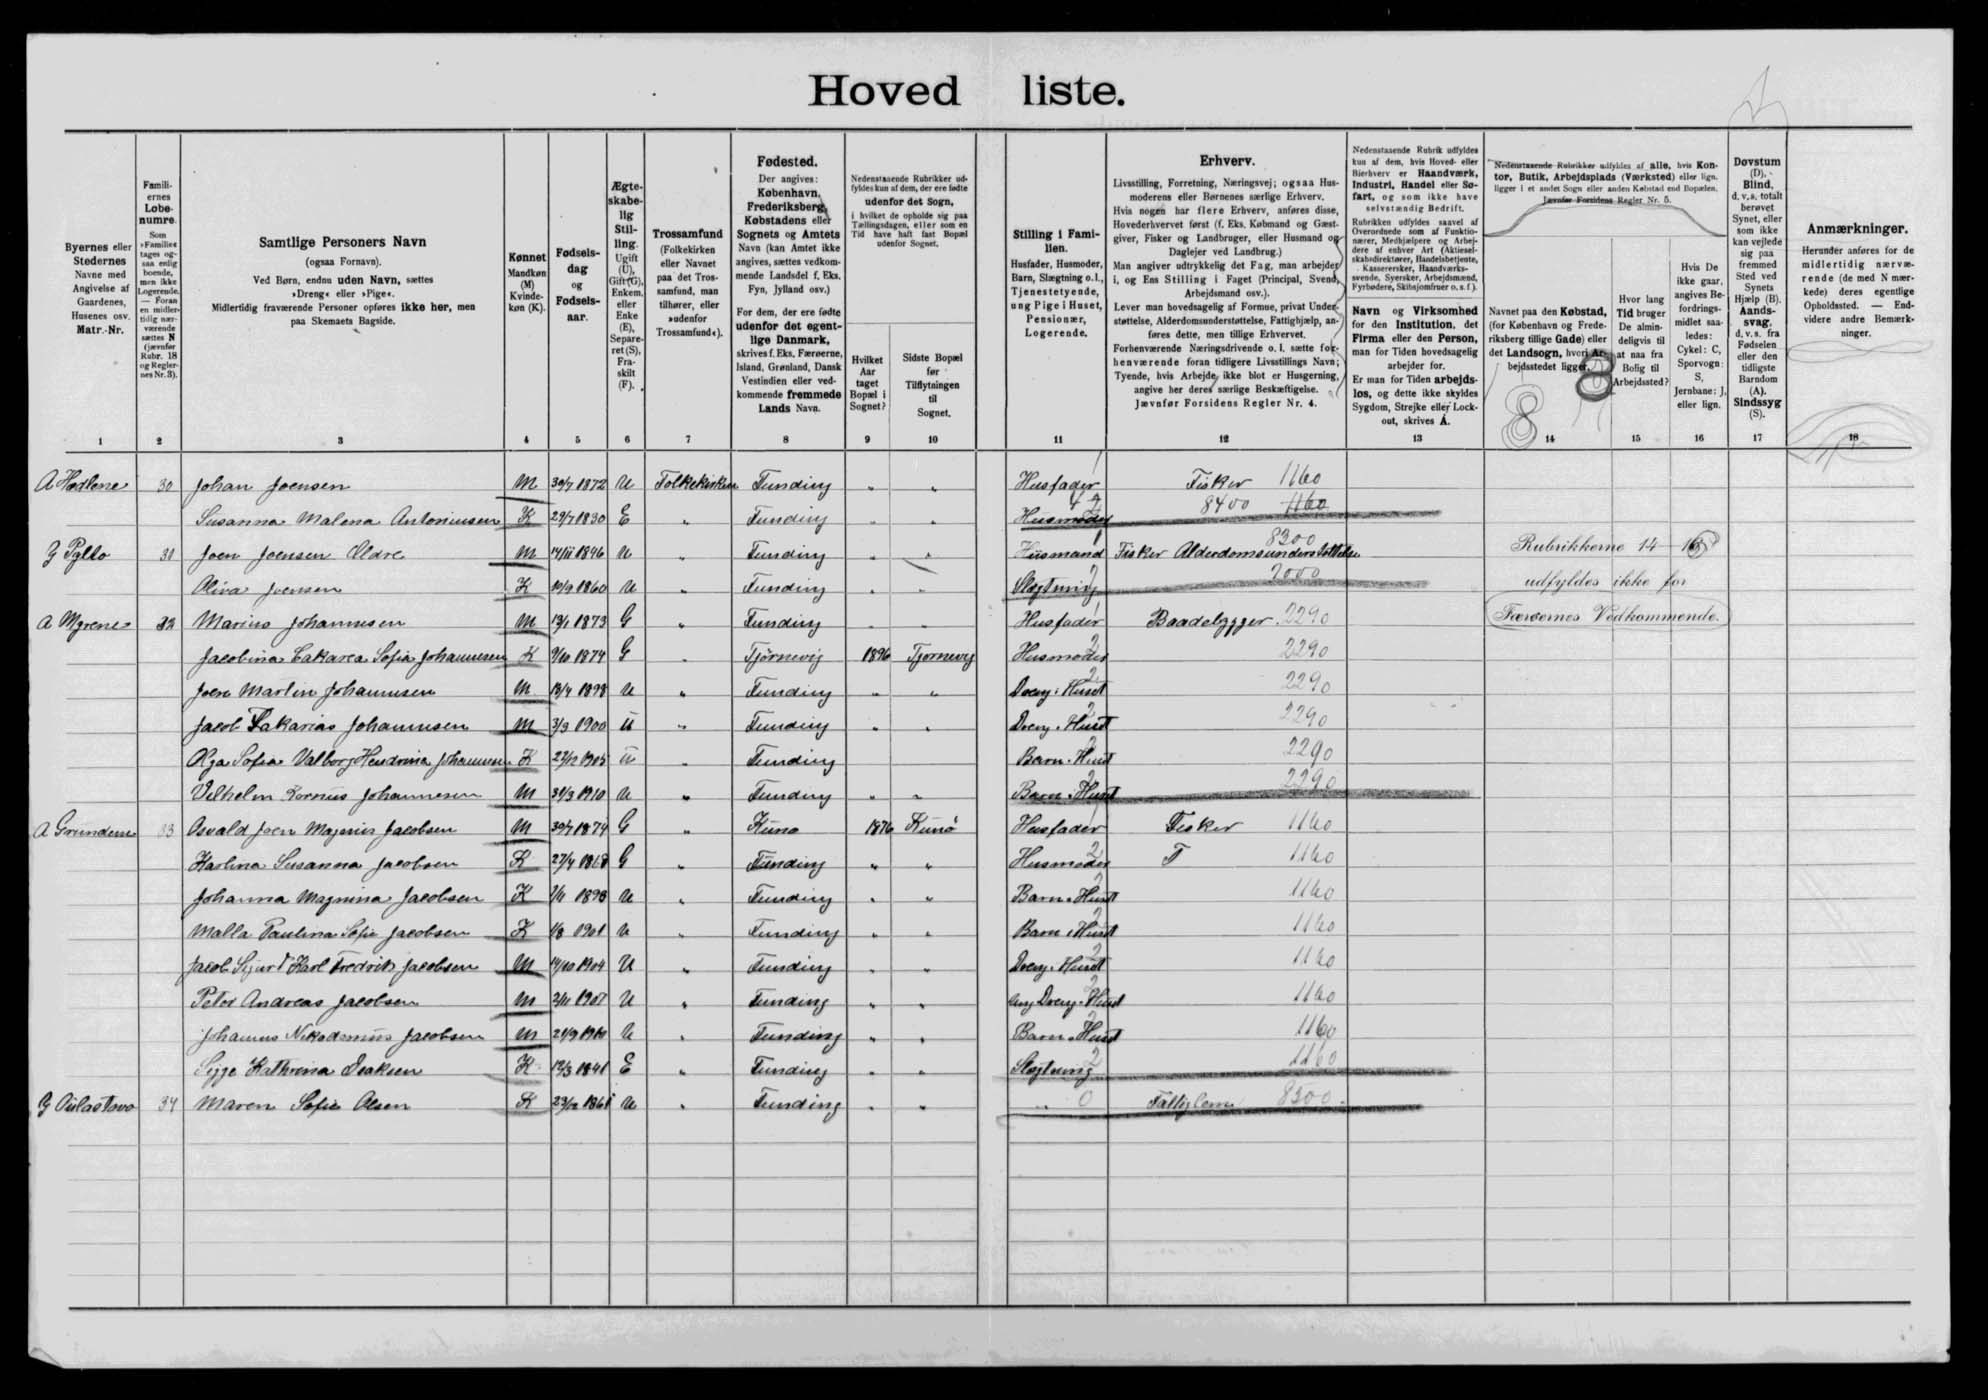 Hoved liste.
Byernes eller Stedernes Navne med Angivelse af Gaardenes, Husenes osv. Matr.-Nr.
Familiernes Løbenumre. Som »Familie« tages ogsaa enlig boende, men ikke Logerende. — Foran en midlertidig nærværende sættes N (jævnfør Rubr. 18 og Reglernes Nr. 3).
Samtlige Personers Navn (ogsaa Fornavn). Ved Børn, endnu uden Navn, sættes »Dreng« eller »Pige«. Midlertidig fraværende Personer opføres ikke her, men paa Skemaets Bagside.
Kønnet Mandkøn (M) Kvindekøn (K).
Fødselsdag og Fødselsaar.
Ægteskabelig Stilling. Ugift (U), Gift (G), Enkem. eller Enke (E), Separeret (S), Fraskilt (F).
Trossamfund (Folkekirken eller Navnet paa det Trossamfund, man tilhører, eller »udenfor Trossamfund«).
Fødested. Der angives: København, Frederiksberg, Købstadens eller Sognets og Amtets Navn (kan Amtet ikke angives, sættes vedkommende Landsdel f. Eks. Fyn, Jylland osv.) For dem, der ere fødte udenfor det egentlige Danmark, skrives f. Eks. Færøerne, Island, Grønland, Dansk Vestindien eller vedkommende fremmede Lands Navn.
Nedenstaaende Rubrikker udfyldes kun af dem, der ere fødte udenfor det Sogn, i hvilket de opholde sig paa Tællingsdagen, eller som en Tid have haft fast Bopæl udenfor Sognet.
Hvilket Aar taget Bopæl i Sognet?
Sidste Bopæl før Tilflytningen til Sognet.
Stilling i Familien. Husfader, Husmoder, Barn, Slægtning o. l., Tjenestetyende, ung Pige i Huset, Pensionær, Logerende.
Erhverv.
Livsstilling, Forretning, Næringsvej; ogsaa Husmoderens eller Børnenes særlige Erhverv. Hvis nogen har flere Erhverv, anføres disse, Hovederhvervet først (f. Eks. Købmand og Gæstgiver, Fisker og Landbruger, eller Husmand og Daglejer ved Landbrug.) Man angiver udtrykkelig det Fag, man arbejder i, og Ens Stilling i Faget (Principal, Svend, Arbejdsmand osv.). Lever man hovedsagelig af Formue, privat Understøttelse, Alderdomsunderstøttelse, Fattighjælp, anføres dette, men tillige Erhvervet. Forhenværende Næringsdrivende o. l. sætte forhenværende foran tidligere Livsstillings Navn; Tyende, hvis Arbejde ikke blot er Husgerning, angive her deres særlige Beskæftigelse. Jævnfør Forsidens Regler Nr. 4.
Nedenstaaende Rubrik udfyldes kun af dem, hvis Hoved- eller Bierhverv er Haandværk, Industri, Handel eller Søfart, og som ikke have selvstændig Bedrift. Rubrikken udfyldes saavel af Overordnede som af Funktionærer, Medhjælpere og Arbejdere af enhver Art (Aktieselskabsdirektører, Handelsbetjente, Kasserersker, Haandværkssvende, Syersker, Arbejdsmænd, Fyrbødere, Skibsjomfruer o. s. f.).
Navn og Virksomhed for den Institution, det Firma eller den Person, man for Tiden hovedsagelig arbejder for. Er man for Tiden arbejdsløs, og dette ikke skyldes Sygdom, Strejke eller Lockout, skrives A.
Nedenstaaende Rubrikker udfyldes af alle, hvis Kontor, Butik, Arbejdsplads (Værksted) eller lign. ligger i et andet Sogn eller anden Købstad end Bopælen. Jævnfør Forsidens Regler Nr. 5.
Navnet paa den Købstad, (for København og Frederiksberg tillige Gade) eller det Landsogn, hvori Arbejdsstedet ligger.
8 8
Hvor lang Tid bruger De almindeligvis til at naa fra Bolig til Arbejdssted?
Hvis De ikke gaar, angives Befordringsmidlet saaledes: Cykel: C, Sporvogn: S, Jernbane: J, eller lign.
Døvstum (D), Blind, d. v. s. totalt berøvet Synet, eller som ikke kan vejlede sig paa fremmed Sted ved Synets Hjælp (B). Aandssvag, d. v. s. fra Fødselen eller den tidligste Barndom (A). Sindssyg (S).
Anmærkninger. Herunder anføres for de midlertidig nærværende (de med N mærkede) deres egentlige Opholdssted. — Endvidere andre Bemærkninger.
1 2 3 4 5 6 7 8 9 10 11 12 13 14 15 16 17 18
30 Johan Joensen M 30/7 1872 U Folkekirken Funding " " Husfader Fisker 1160
Susanna Malena Antoniusen K 29/7 1830 E " Funding " " Husmoder 8400 1160
31 Joen Joensen Ældre M 1846 U " Funding " " Husmand Fisker Alderdomsunderstøttelse 8300 Rubrikkerne 14 - 16
Joensen K 10/9 1860 U " Funding " " Slægtning 2000 udfyldes ikke for
A Myrene 32 Marius Johannesen M 13/1 1873 G " Funding " " Husfader Baadebygger 2290 Færøernes Vedkommende.
Jacobina Sofia Johannesen K 9/10 1874 G " Tjørnevig 1896 Tjørnevig Husmoder 2290
Joen Martin Johannesen M 18/4 1898 U " Funding " " Dreng i Huset 2290
Jacob Johannesen M 3/3 1900 U " Funding " " Dreng i Huset 2290
Olga Sofia Valborg Hendrina Johannesen K 22/12 1905 U " Funding Barn i Huset 2290
Vilhelm Johannesen M 31/3 1910 U " Funding " " Barn i Huset 2290
33 Osvald Joen Magnus Jacobsen M 30/7 1874 G " Kunø 1876 Kunø Husfader Fisker 1160
Karlina Susanna Jacobsen K 27/4 G " Funding " " Husmoder 1160
Johanna Magnina Jacobsen K 1898 U " Funding " " Barn i Huset 1160
Malla Paulina Sofie Jacobsen K 1/8 1901 U " Funding " " Barn i Huset 1160
Jacob Sigurd Karl Fredrik Jacobsen M 14/10 1904 U " Funding " " Dreng i Huset 1160
Peter Andreas Jacobsen M 2/11 1907 U " Funding " " Dreng i Huset 1160
Johannes Nikodemus Jacobsen M 21/9 1910 U " Funding " " Barn i Huset 1160
Sigga Kathrina Isaksen K 12/3 1841 E " Funding " " Slægtning 1160
34 Maren Sofie Olsen K U " Funding " " " 0 Fattiglem 8500